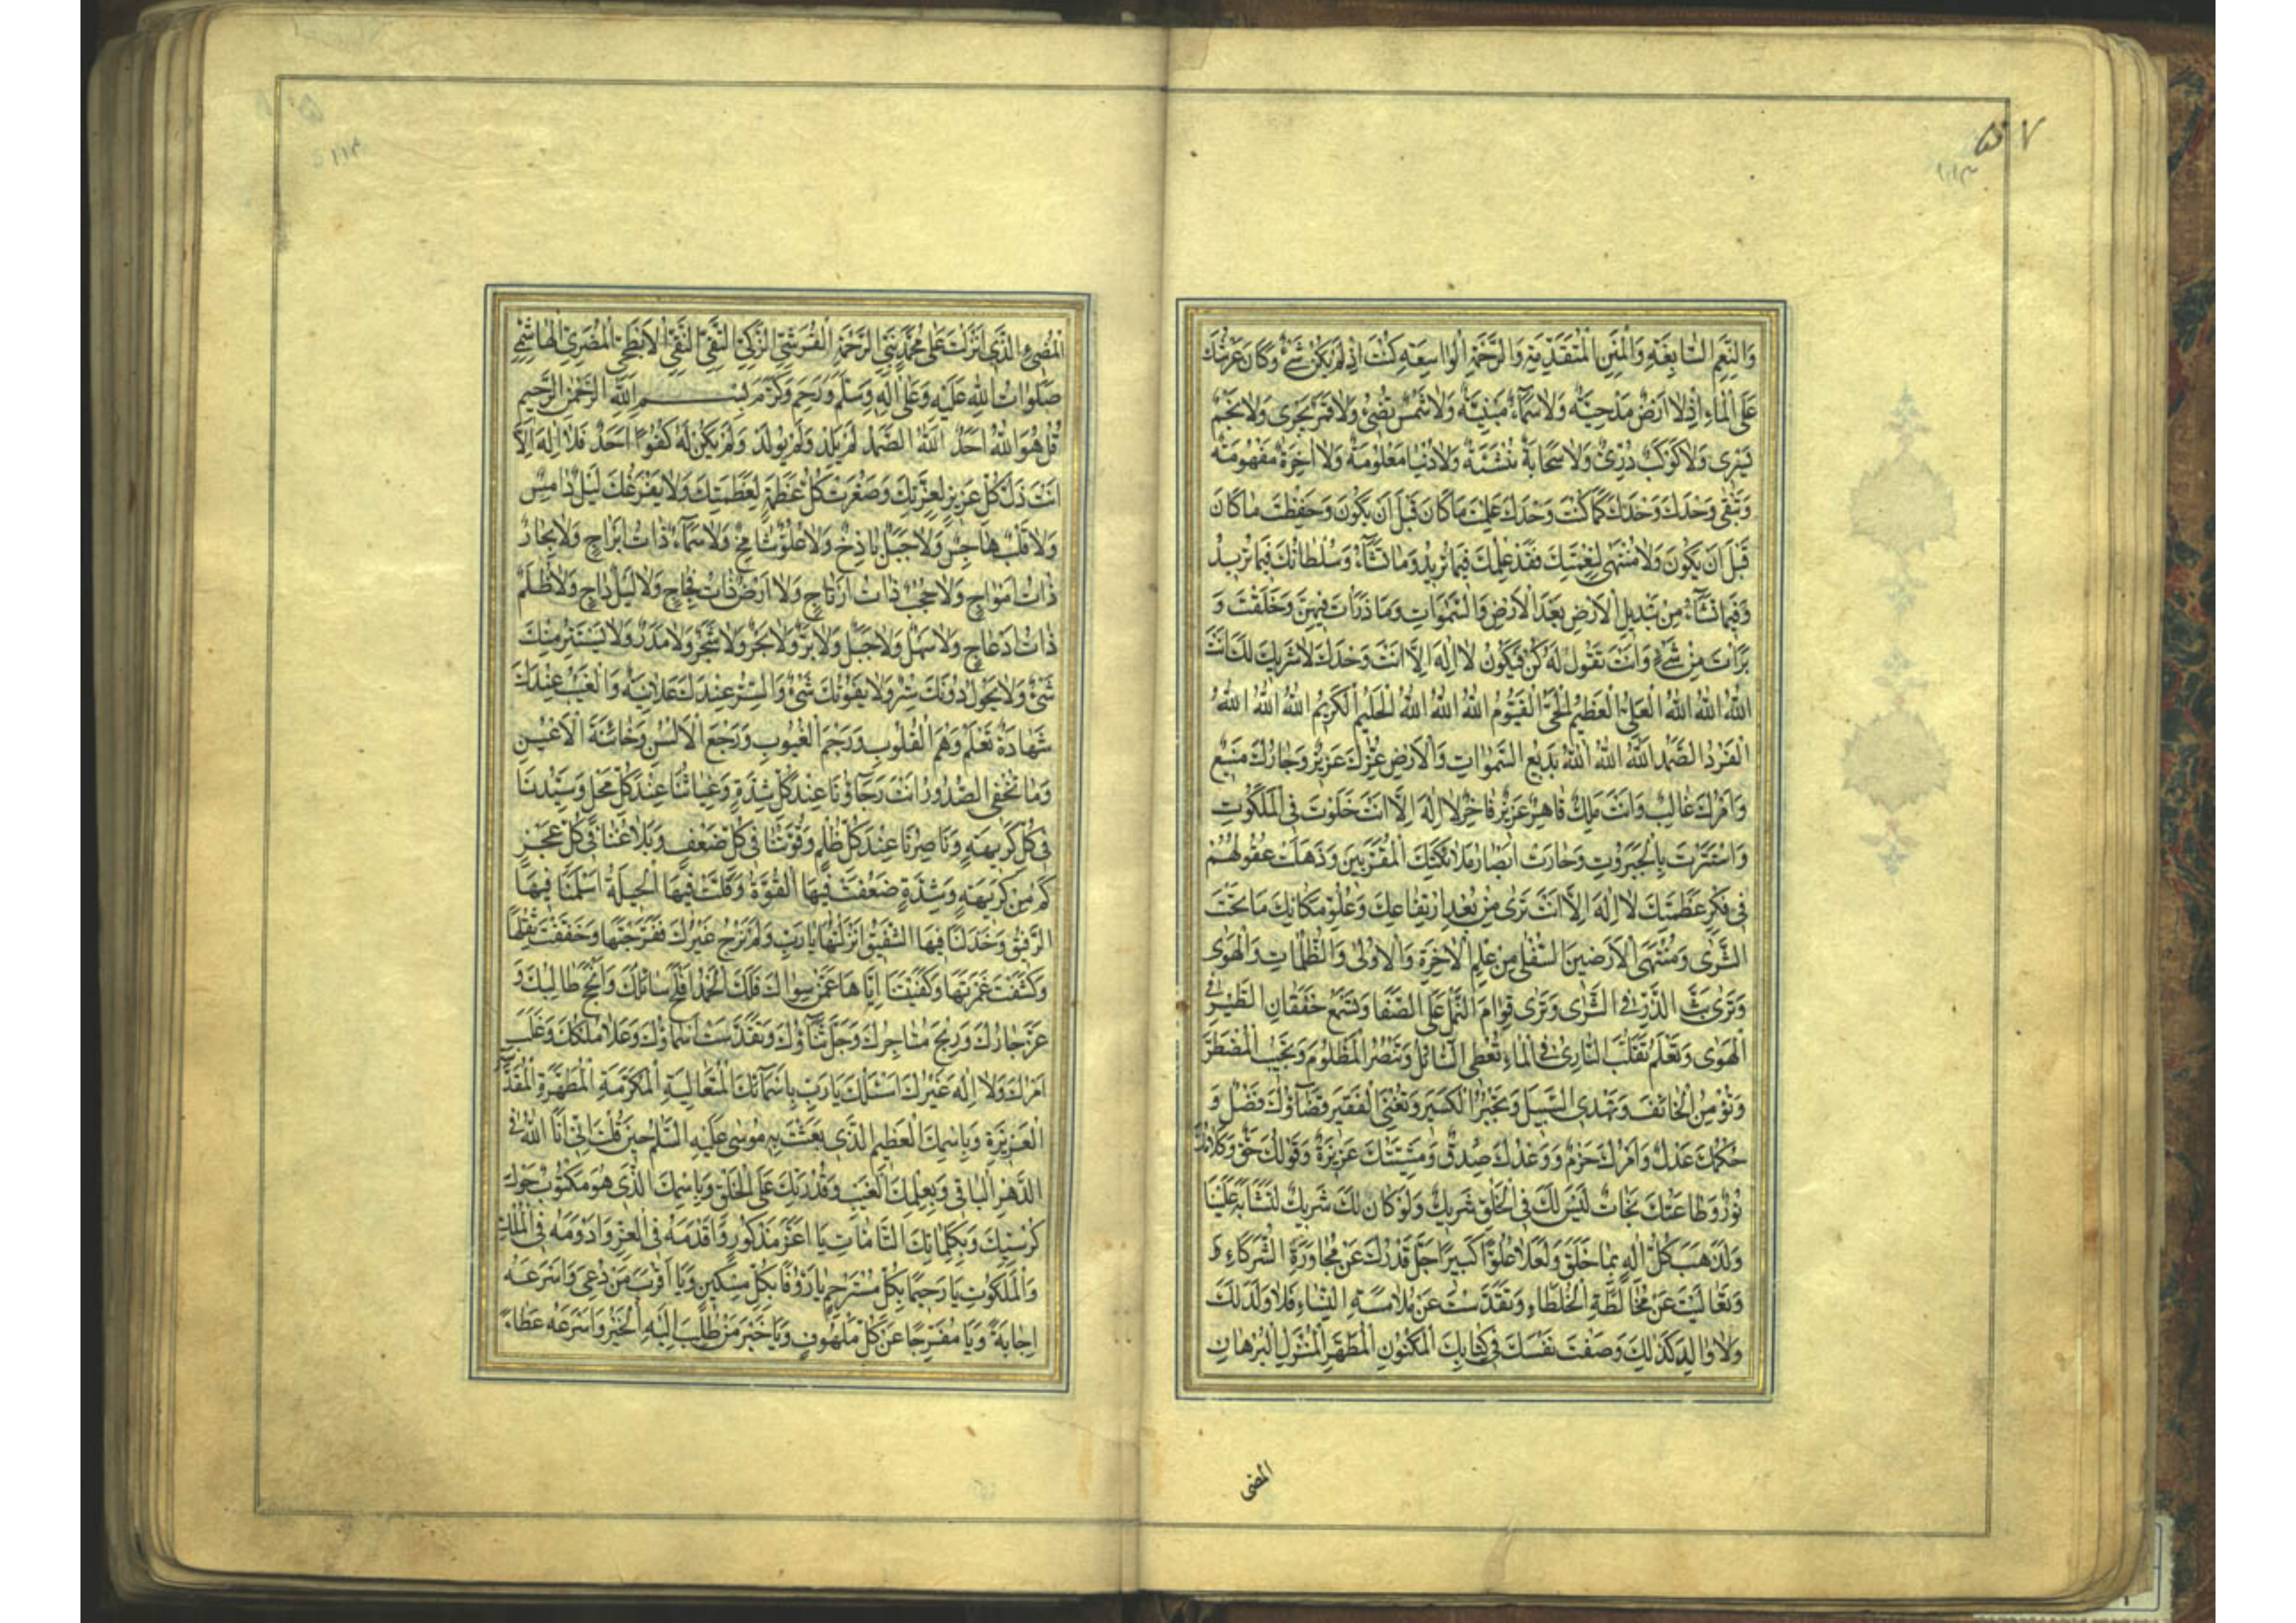 ۵۷
۱۱۳
وَالنِّعَمِ السَّابِغَةِ وَالْمِنَنِ الْمُتَقَدِّمَةِ وَالرَّحْمَةِ الْوَاسِعَةِ كُنْتَ اِذْ لَمْ يَكُنْ شَیْءٌ وَكَانَ عَرْشُكَ
عَلَى الْمَاءِ اِذْ لَا اَرْضٌ مَدْحِيَّةٌ وَلَا سَمَاءٌ مَبْنِيَّةٌ وَلَا شَمْسٌ تُضِیءُ وَلَا قَمَرٌ يَجْرِی وَلَا نَجْمٌ
يَسْرِی وَلَا كَوْكَبٌ دُرِّیٌّ وَلَا سَحَابَةٌ مُنْشَئَةٌ وَلَا دُنْيَا مَعْلُومَةٌ وَلَا اٰخِرَةٌ مَفْهُومَةٌ
وَتَبْقٰى وَحْدَكَ وَحْدَكَ كَمَا كُنْتَ وَحْدَكَ عَلِمْتَ مَا كَانَ قَبْلَ اَنْ يَكُونَ وَحَفِظْتَ مَا كَانَ
قَبْلَ اَنْ يَكُونَ وَلَا مُنْتَهٰى لِنِعْمَتِكَ فَقَدْ عِلْمُكَ فِيمَا تُرِيدُ وَمَا تَشَاءُ وَسُلْطَانُكَ فِيمَا تُرِيدُ
وَفِيمَا تَشَاءُ مِنْ تَبْدِيلِ الْاَرْضِ بَعْدَ الْاَرْضِ وَالسَّمٰوَاتِ وَمَا ذَرَأْتَ فِيهِنَّ وَخَلَقْتَ وَ
بَرَأْتَ مِنْ شَیْءٍ وَاَنْتَ تَقُولُ لَهُ كُنْ فَيَكُونُ لَا اِلٰهَ اِلَّا اَنْتَ وَحْدَكَ لَا شَرِيكَ لَكَ اَنْتَ
اللّٰهُ اللّٰهُ اللّٰهُ الْعَلِیُّ الْعَظِيمُ الْحَیُّ الْقَيُّومُ اللّٰهُ اللّٰهُ اللّٰهُ الْحَلِيمُ الْكَرِيمُ اللّٰهُ اللّٰهُ اللّٰهُ
الْفَرْدُ الصَّمَدُ اللّٰهُ اللّٰهُ اللّٰهُ بَدِيعُ السَّمٰوَاتِ وَالْاَرْضِ عِزُّكَ عَزِيزٌ وَجَارُكَ مَنِيعٌ
وَاَمْرُكَ غَالِبٌ وَاَنْتَ مَلِكٌ قَاهِرٌ عَزِيزٌ فَاخِرٌ لَا اِلٰهَ اِلَّا اَنْتَ خَلَوْتَ فِی الْمَلَكُوتِ
وَاسْتَتَرْتَ بِالْجَبَرُوتِ وَحَارَتْ اَبْصَارُ مَلَائِكَتِكَ الْمُقَرَّبِينَ وَذَهَلَتْ عُقُولُهُمْ
فِی فِكْرِ عَظَمَتِكَ لَا اِلٰهَ اِلَّا اَنْتَ تَرٰى مِنْ بُعْدِ ارْتِفَاعِكَ وَعُلُوِّ مَكَانِكَ مَا تَحْتَ
الثَّرٰى وَمُنْتَهَى الْاَرَضِينَ السُّفْلٰى مِنْ عِلْمِ الْاٰخِرَةِ وَالْاُولٰى وَالظُّلُمَاتِ وَالْهَوٰى
وَتَرٰى بَثَّ الذَّرِّ فِی الثَّرٰى وَتَرٰى قِوَامَ النَّمْلِ عَلَى الصَّفَا وَتَسْمَعُ خَفَقَانَ الطَّيْرِ فِی
الْهَوٰى وَتَعْلَمُ تَقَلُّبَ السَّارِی فِی الْمَاءِ تُعْطِی السَّائِلَ وَتَنْصُرُ الْمَظْلُومَ وَتُجِيبُ الْمُضْطَرَّ
وَتُؤْمِنُ الْخَائِفَ وَتَهْدِی السَّبِيلَ وَتَجْبُرُ الْكَسِيرَ وَتُغْنِی الْفَقِيرَ قَضَاؤُكَ فَصْلٌ وَ
حُكْمُكَ عَدْلٌ وَاَمْرُكَ حَزْمٌ وَوَعْدُكَ صِدْقٌ وَمَشِيَّتُكَ عَزِيزَةٌ وَقَوْلُكَ حَقٌّ وَكَلَامُكَ
نُورٌ وَطَاعَتُكَ نَجَاتٌ لَيْسَ لَكَ فِی الْخَلْقِ شَرِيكٌ وَلَوْ كَانَ لَكَ شَرِيكٌ لَتَشَابَهَ عَلَيْنَا
وَلَذَهَبَ كُلُّ اِلٰهٍ بِمَا خَلَقَ وَلَعَلَا عُلُوًّا كَبِيرًا جَلَّ قَدْرُكَ عَنْ مُجَاوَرَةِ الشُّرَكَاءِ وَ
وَتَعَالَيْتَ عَنْ مُخَالَطَةِ الْخُلَطَاءِ وَتَقَدَّسْتَ عَنْ مُلَامَسَةِ النِّسَاءِ فَلَا وَلَدَ لَكَ
وَلَا وَالِدَ كَذٰلِكَ وَصَفْتَ نَفْسَكَ فِی كِتَابِكَ الْمَكْنُونِ الْمُطَهَّرِ الْمُنْزَلِ الْبُرْهَانِ
المضی
۱۱۴
الْمُضِیءِ الَّذِی اَنْزَلْتَ عَلٰى مُحَمَّدٍ نَبِیِّ الرَّحْمَةِ الْقُرَشِیِّ الزَّكِیِّ التَّقِیِّ النَّقِیِّ الْاَبْطَحِیِّ الْمُضَرِیِّ الْهَاشِمِیِّ
صَلَوَاتُ اللّٰهِ عَلَيْهِ وَعَلٰى اٰلِهِ وَسَلَّمَ وَرَحِمَ وَكَرَّمَ بِسْمِ اللّٰهِ الرَّحْمٰنِ الرَّحِيمِ
قُلْ هُوَ اللّٰهُ اَحَدٌ اَللّٰهُ الصَّمَدُ لَمْ يَلِدْ وَلَمْ يُولَدْ وَلَمْ يَكُنْ لَهُ كُفُوًا اَحَدٌ فَلَا اِلٰهَ اِلَّا
اَنْتَ ذَلَّ كُلُّ عَزِيزٍ لِعِزَّتِكَ وَصَغُرَتْ كُلُّ عَظَمَةٍ لِعَظَمَتِكَ وَلَا يُفْزِعُكَ لَيْلٌ دَامِسٌ
وَلَا قَلْبٌ هَاجِسٌ وَلَا جَبَلٌ بَاذِخٌ وَلَا عُلُوٌّ شَامِخٌ وَلَا سَمَاءٌ ذَاتُ اَبْرَاجٍ وَلَا بِحَارٌ
ذَاتُ اَمْوَاجٍ وَلَا حُجُبٌ ذَاتُ اَرْتَاجٍ وَلَا اَرْضٌ ذَاتُ فِجَاجٍ وَلَا لَيْلٌ دَاجٍ وَلَا ظُلَمٌ
ذَاتُ اَدْعَاجٍ وَلَا سَهْلٌ وَلَا جَبَلٌ وَلَا بَرٌّ وَلَا بَحْرٌ وَلَا شَجَرٌ وَلَا مَدَرٌ وَلَا يَسْتَتِرُ مِنْكَ
شَیْءٌ وَلَا يَحُولُ دُونَكَ سِتْرٌ وَلَا يَفُوتُكَ شَیْءٌ وَالسِّرُّ عِنْدَكَ عَلَانِيَةٌ وَالْغَيْبُ عِنْدَكَ
شَهَادَةٌ تَعْلَمُ وَهْمَ الْقُلُوبِ وَرَجْمَ الْغُيُوبِ وَرَجْعَ الْاَلْسُنِ وَخَائِنَةَ الْاَعْيُنِ
وَمَا تُخْفِی الصُّدُورُ اَنْتَ رَجَاؤُنَا عِنْدَ كُلِّ شِدَّةٍ وَغِيَاثُنَا عِنْدَ كُلِّ مَحْلٍ وَسَيِّدُنَا
فِی كُلِّ كَرِيهَةٍ وَنَاصِرُنَا عِنْدَ كُلِّ ظُلْمٍ وَقُوَّتُنَا فِی كُلِّ ضَعْفٍ وَبَلَاغُنَا فِی كُلِّ عَجْزٍ
كَمْ مِنْ كَرِيهَةٍ وَشِدَّةٍ ضَعُفَتْ فِيهَا الْقُوَّةُ وَقَلَّتْ فِيهَا الْحِيلَةُ اَسْلَمَنَا فِيهَا
الرَّفِيقُ وَخَذَلَنَا فِيهَا الشَّفِيقُ اَنْزَلْتُهَا يَا رَبِّ وَلَمْ نَرْجُ غَيْرَكَ فَفَرَّجْتَهَا وَخَفَّفْتَ ثِقْلَهَا
وَكَشَفْتَ غَمْرَتَهَا وَكَفَيْتَنَا اِيَّاهَا عَمَّنْ سِوَاكَ فَلَكَ الْحَمْدُ اَفْلَحَ سَائِلُكَ وَاَنْجَحَ طَالِبُكَ وَ
عَزَّ جَارُكَ وَرَبِحَ مُتَاجِرُكَ وَجَلَّ ثَنَاؤُكَ وَتَقَدَّسَتْ اَسْمَاؤُكَ وَعَلَا مُلْكُكَ وَغَلَبَ
اَمْرُكَ وَلَا اِلٰهَ غَيْرُكَ اَسْئَلُكَ يَا رَبِّ بِاَسْمَائِكَ الْمُتَعَالِيَةِ الْمُكَرَّمَةِ الْمُطَهَّرَةِ الْمُقَدَّسَةِ
الْعَزِيزَةِ وَبِاسْمِكَ الْعَظِيمِ الَّذِی بَعَثْتَ بِهِ مُوسٰى عَلَيْهِ السَّلٰمُ حِينَ قُلْتَ اِنِّی اَنَا اللّٰهُ فِی
الدَّهْرِ الْبَاقِی وَبِعِلْمِكَ الْغَيْبَ وَقُدْرَتِكَ عَلَى الْخَلْقِ وَبِاسْمِكَ الَّذِی هُوَ مَكْتُوبٌ حَوْلَ
كُرْسِيِّكَ وَبِكَلِمَاتِكَ التَّامَّاتِ يَا اَعَزَّ مَذْكُورٍ وَاَقْدَمَهُ فِی الْعِزِّ وَاَدْوَمَهُ فِی الْمُلْكِ
وَالْمَلَكُوتِ يَا رَحِيمًا بِكُلِّ مُسْتَرْحِمٍ يَا رَؤُفًا بِكُلِّ مِسْكِينٍ وَيَا اَقْرَبَ مَنْ دُعِیَ وَاَسْرَعَهُ
اِجَابَةً وَيَا مُفَرِّجًا عَنْ كُلِّ مَلْهُوفٍ وَيَا خَيْرَ مَنْ طُلِبَ اِلَيْهِ الْخَيْرُ وَاَسْرَعَهُ عَطَاءً